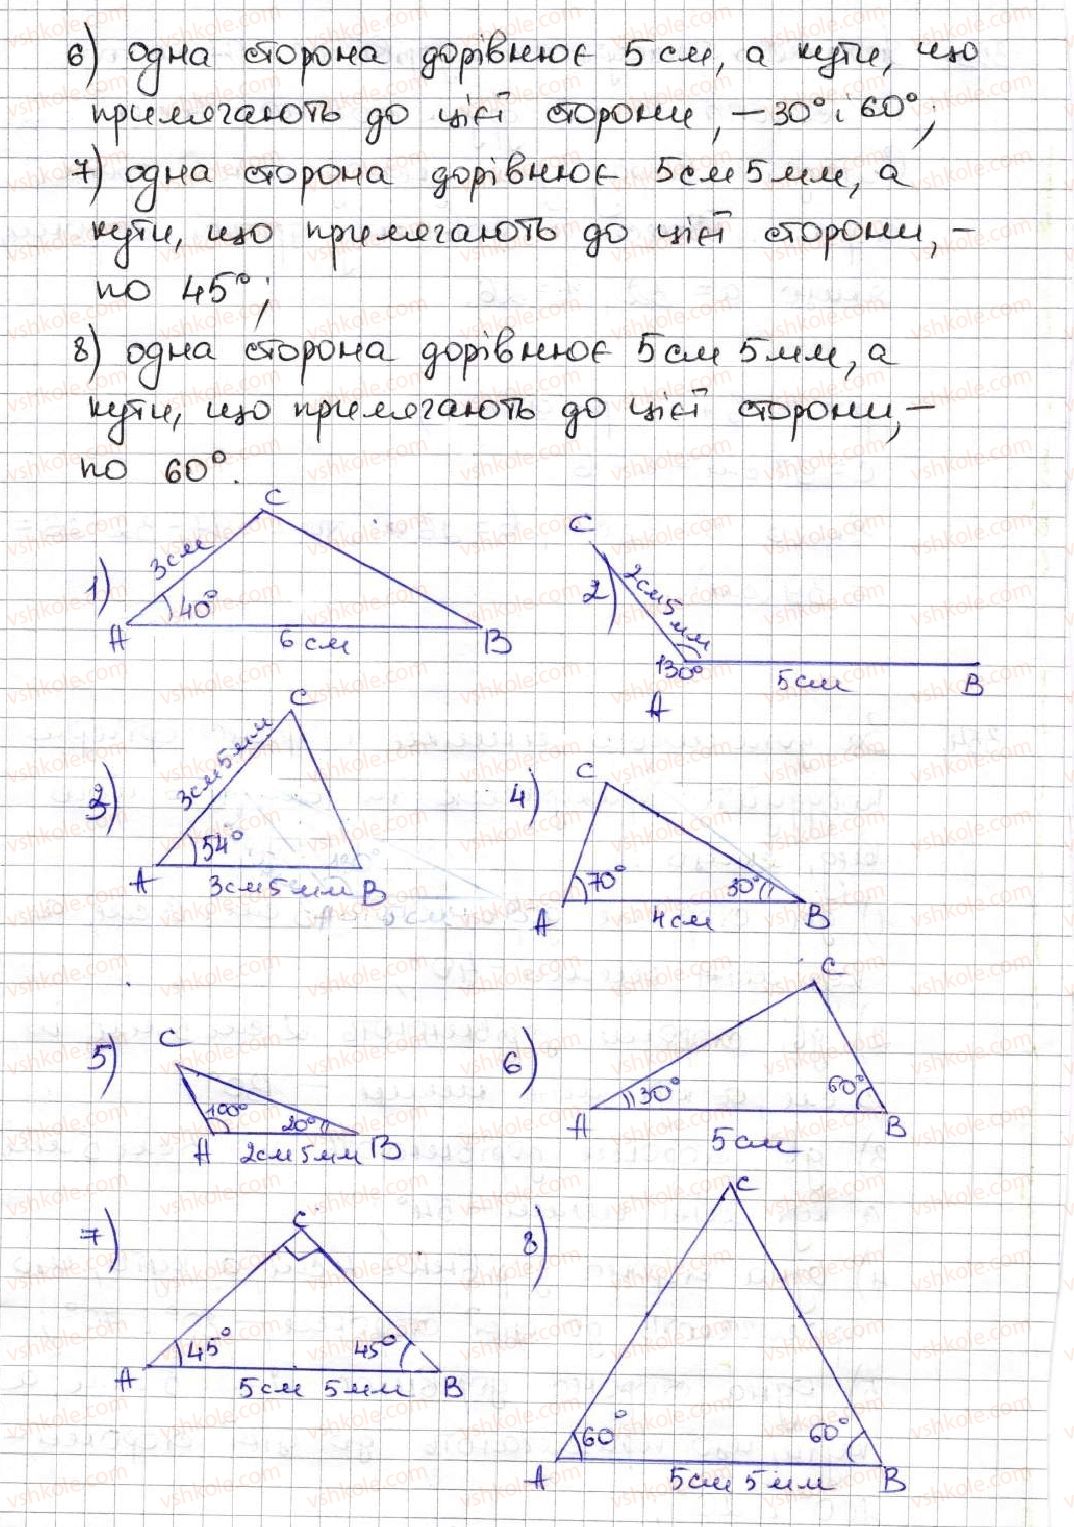 6) одна сторона дорівнює 5 см, а кути, що
прилягають до цієї сторони, – 30° і 60°;
7) одна сторона дорівнює 5 см 5 мм, а
кути, що прилягають до цієї сторони, –
по 45°;
8) одна сторона дорівнює 5 см 5 мм, а
кути, що прилягають до цієї сторони, –
по 60°.
1) C 3 см 40° A 6 см B
2) C 2 см 5 мм 130° A 5 см B
3) C 3 см 5 мм 54° A 3 см 5 мм B
4) C 70° 30° A 4 см B
5) C 100° 20° A 2 см 5 мм B
6) C 30° 60° A 5 см B
7) C 45° 45° A 5 см 5 мм B
8) C 60° 60° A 5 см 5 мм B
vshkole.com